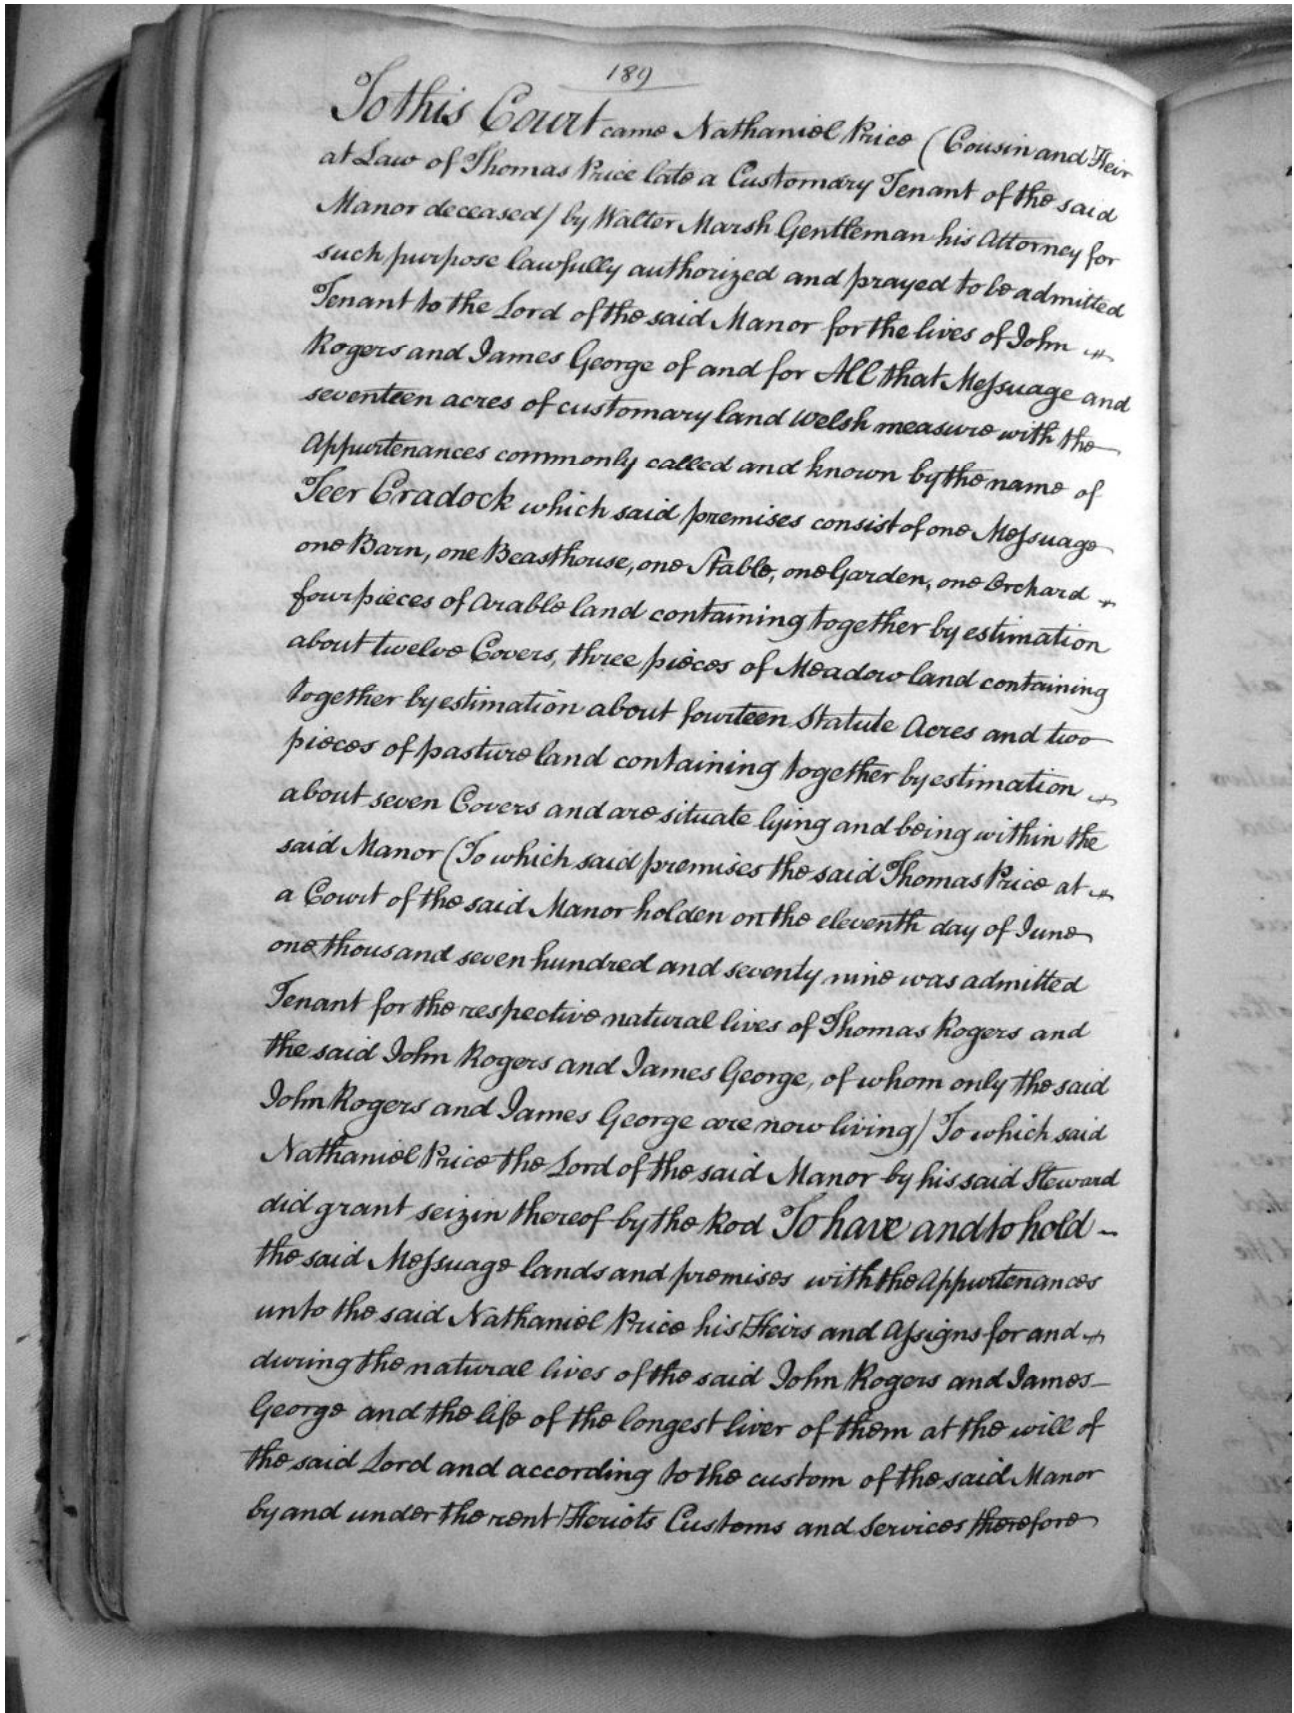 189
To this Court came Nathaniel Price (Cousin and Heir
at Law of Thomas Price late a Customary Tenant of the said
Manor deceased/ by Walter Marsh Gentleman his Attorney for
such purpose lawfully authorized and prayed to be admitted
Tenant to the Lord of the said Manor for the lives of John
Rogers and James George of and for All that Meſsuage and
seventeen acres of customary land Welsh measure with the
Appurtenances commonly called and known by the name of
Teer Cradock which said premises consist of one Meſsuage
one Barn, one Beasthouse, one Stable, one Garden, one Orchard
four pieces of Arable land containing together by estimation
about twelve Covers, three pieces of Meadow land containing
together by estimation about fourteen Statute Acres and two
pieces of pasture land containing together by estimation
about seven Covers and are situate lying and being within the
said Manor (To which said premises the said Thomas Price at
a Court of the said Manor holden on the eleventh day of June
one thousand seven hundred and seventy nine was admitted
Tenant for the respective natural lives of Thomas Rogers and
the said John Rogers and James George, of whom only the said
John Rogers and James George are now living/ To which said
Nathaniel Price the Lord of the said Manor by his said Steward
did grant seizin thereof by the Rod To have and to hold –
the said Meſsuage lands and premises with the Appurtenances
unto the said Nathaniel Price his Heirs and Aſsigns for and
during the natural lives of the said John Rogers and James
George and the life of the longest liver of them at the will of
the said Lord and according to the custom of the said Manor
by and under the rent Heriots Customs and Services therefore